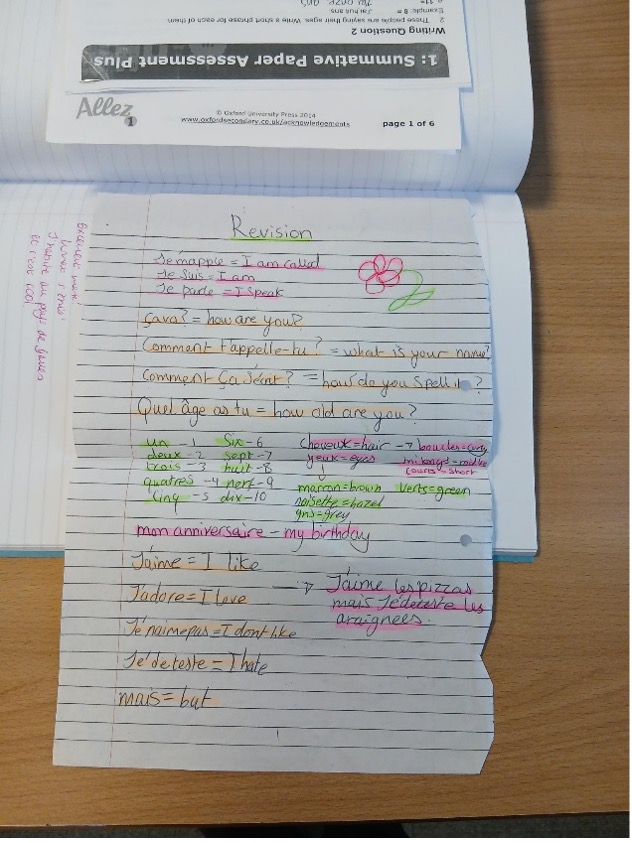 2 These people are saying their ages. Write a short phrase for each of them.
Writing Question 2
1: Summative Paper Assessment Plus
Allez 1
© Oxford University Press 2014
www.oxfordsecondary.co.uk/acknowledgements
page 1 of 6
Revision
Je mapple = I am called
Je suis = I am
Je parle = I speak
Çava? = how are you?
Comment t'appelle-tu? = what is your name?
Comment Ça s'écrit? = how do you spell it?
Quel âge as tu = how old are you?
un - 1 Six - 6 Cheveux = hair → boucles = curly
deux - 2 sept - 7 yeux = eyes
trois - 3 huit - 8 courts = short
quatres - 4 nerf - 9 marron = brown verts = green
cinq - 5 dix - 10 noisette = hazel
gris = grey
mon anniversaire - my birthday
J'aime = I like
J'adore = I love → J'aime les pizzas
mais Je déteste les
araignees.
Je naime pas = I dont like
Je déteste = I hate
mais = but